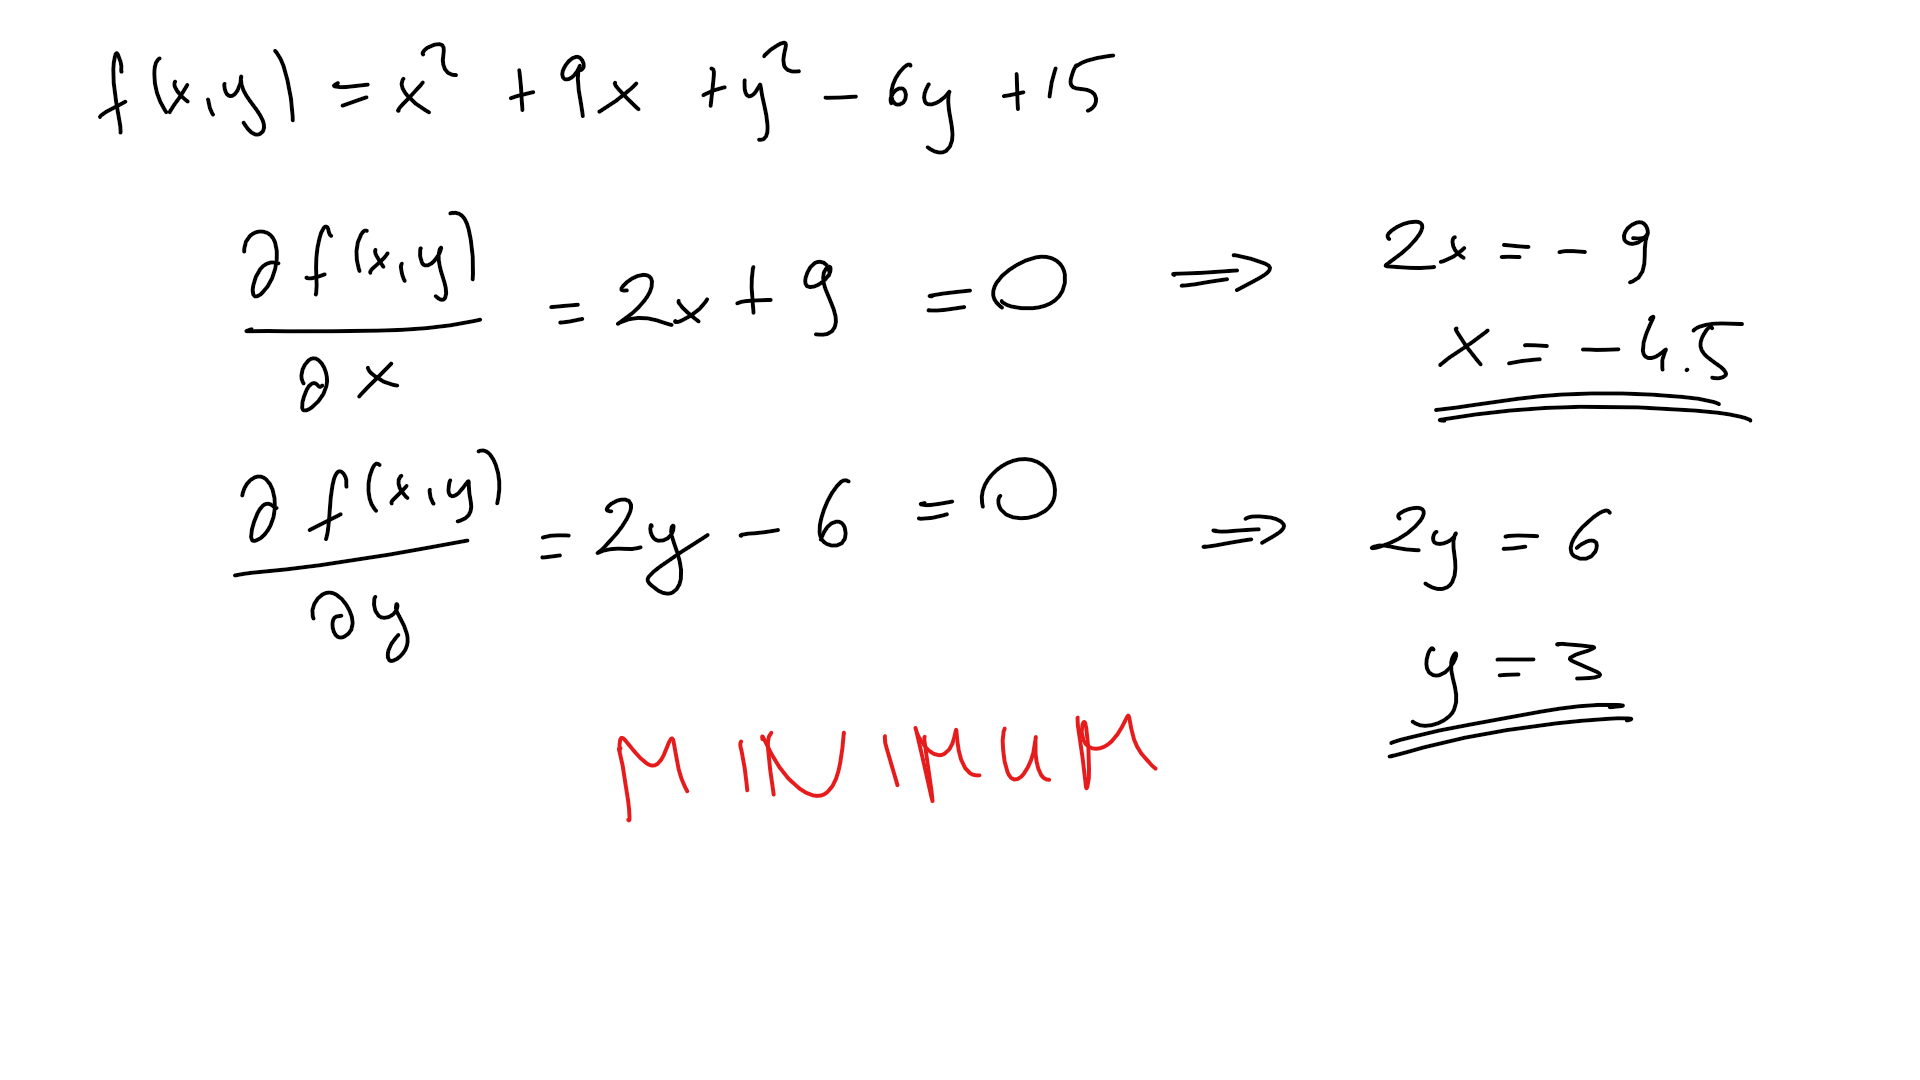 f(x,y) = x² + 9x + y² - 6y + 15
∂f(x,y)/∂x = 2x + 9 = 0 ⇒ 2x = -9
x = -4.5
∂f(x,y)/∂y = 2y - 6 = 0 ⇒ 2y = 6
y = 3
MINIMUM